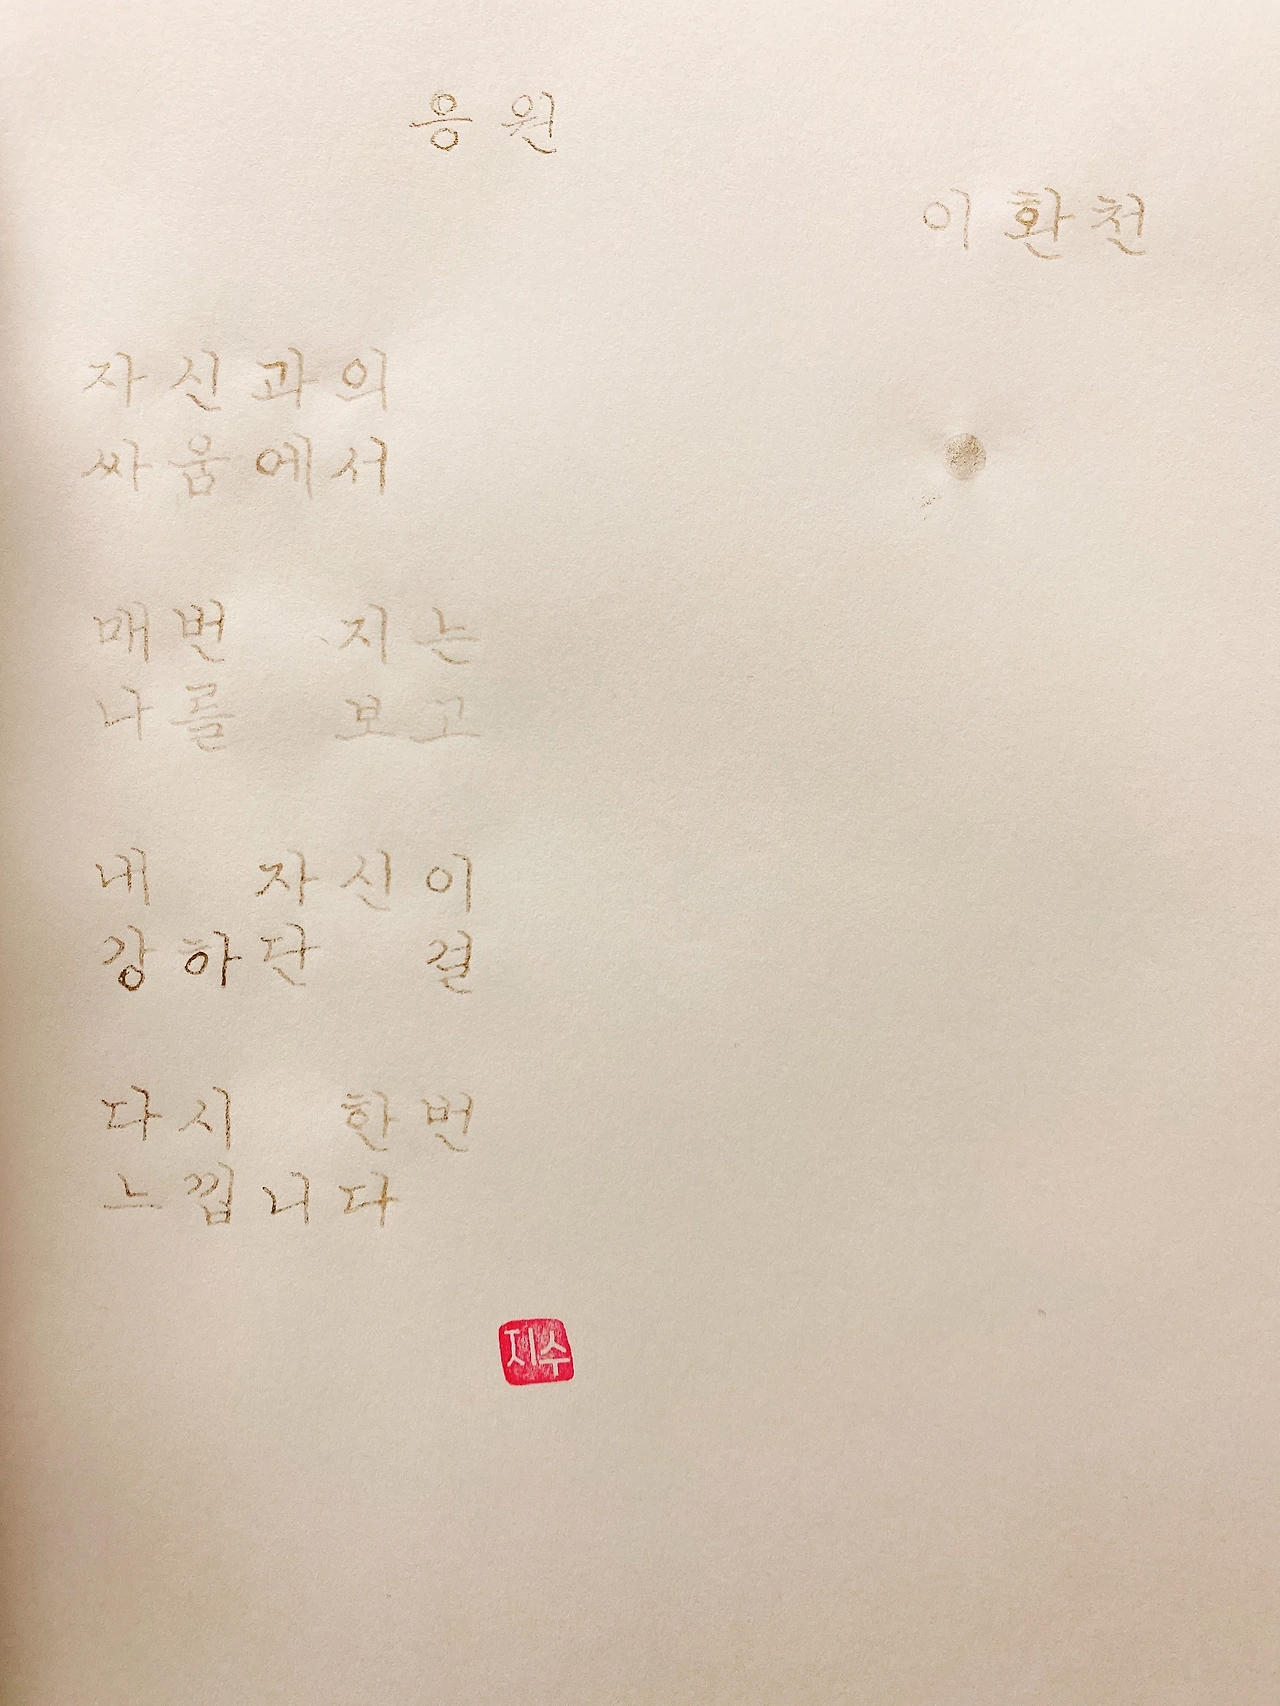 응원
이환천
자신과의
싸움에서
매번 지는
나를 보고
내 자신이
강하단 걸
다시 한번
느낍니다
지수